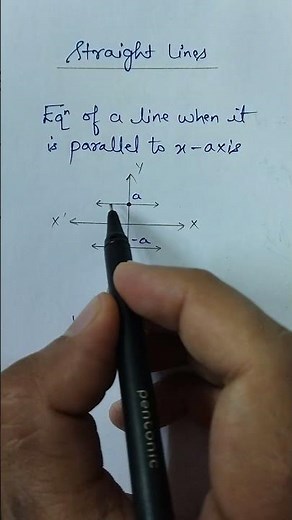 Straight Lines
Eqⁿ of a line when it
is parallel to x-axis
Y
a
X' X
-a
pentonic